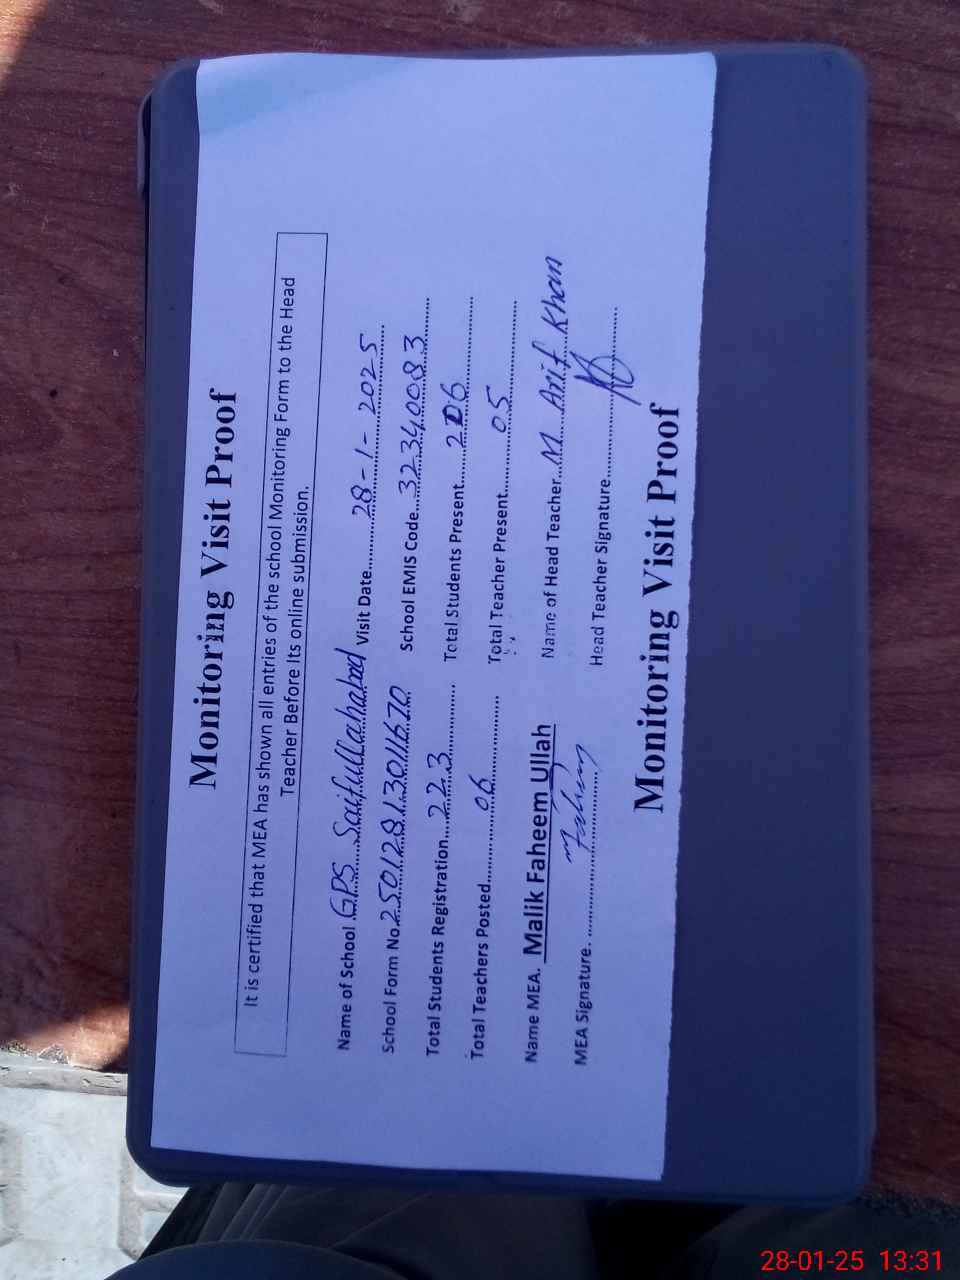 Monitoring Visit Proof
It is certified that MEA has shown all entries of the school Monitoring Form to the Head
Teacher Before Its online submission.
Name of School GPS Saifullahabad Visit Date 28-1-2025
School Form No. 25012813011670 School EMIS Code 32340083
Total Students Registration 223 Total Students Present 206
Total Teachers Posted 06 Total Teacher Present 05
Name MEA. Malik Faheem Ullah Name of Head Teacher M. Arif Khan
MEA Signature. Fahim Head Teacher Signature
Monitoring Visit Proof
28-01-25 13:31